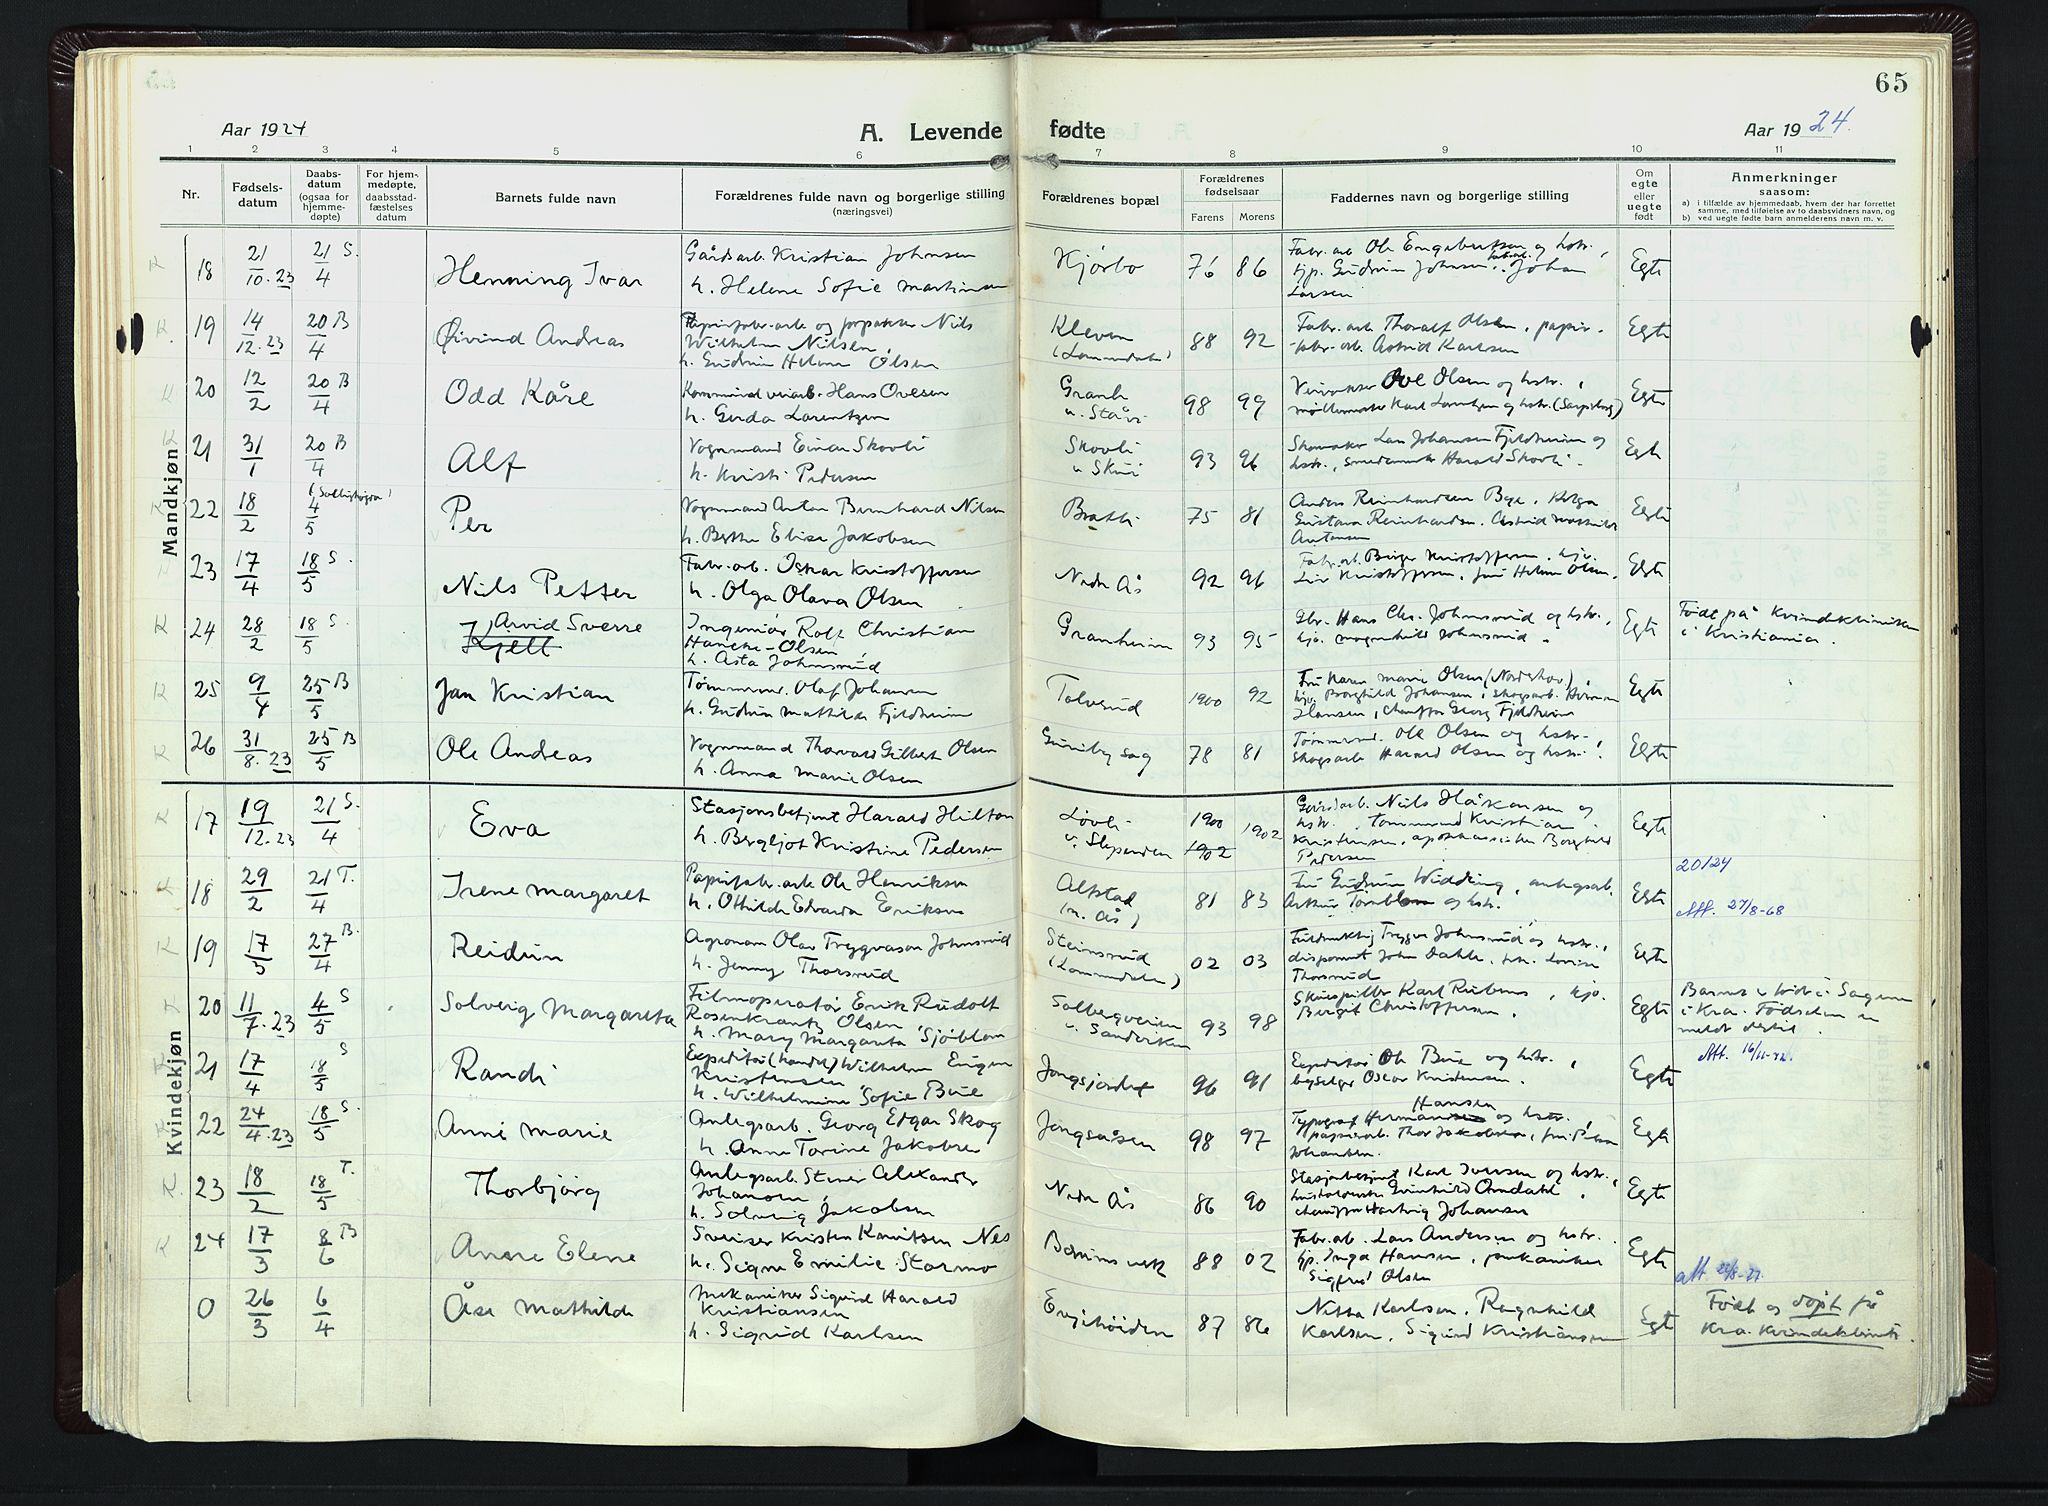 65
Aar 1924
A. Levende fødte
Aar 1924.
1 2 3 4 5 6 7 8 9 10 11
Nr.
Fødsels-
datum
Daabs-
datum
(ogsaa for
hjemme-
døpte)
For hjem-
medøpte,
daabsstad-
fæstelses
datum
Barnets fulde navn
Forældrenes fulde navn og borgerlige stilling
(næringsvei)
Forældrenes bopæl
Forældrenes
fødselsaar
Farens Morens
Faddernes navn og borgerlige stilling
Om
egte
eller
uegte
født
Anmerkninger
saasom:
a) i tilfælde av hjemmedaab, hvem der har forrettet
samme, med tilføielse av to daabsvidners navn, og
b) ved uegte fødte barn anmelderens navn m. v.
Mandkjøn
18 21/10.23 21/4 S. Henning Ivar
Gårdsarb. Kristian Johnsen
h. Helene Sofie Martinsen
Kjørbo 76 86
Fabr.arb Ole Engebretsen og hstr.,
tjp. Gudrun Johnsen, Johan
Larsen
Egte
19 14/12.23 20/4 B Øivind Andreas
Nils
Wilhelm Nilsen
h. Gudrun Helene Olsen
Kleven
(Lommedalen)
88 92
Fabr.arb Thoralf Olsen, papir-
fabr.arb. Astrid Karlsen
Egte
20 12/2 20/4 B Odd Kåre
Hans Ovesen
h. Gerda Larentzen
98 99
Ole Olsen og hstr.,
og hstr. (Sarpsborg)
Egte
21 31/1 20/4 B Alf
Vognmand Einar Skovli
h. Kristi Pedersen
Skovli
v. Skui
93 96
Skomaker Lars Johansen Fjeldheim og
hstr., Harald Skovli.
Egte
22 18/2 4/5 Per
Vognmand Anton Bernhard Nilsen
h. Berthe Elise Jakobsen
Bratli 75 81
Anders Reinhardsen Bye, Helga
Gustava Reinhardsen, Astrid Mathilde
Antonsen
Egte
23 17/4 18/5 S. Nils Petter
Fabr.arb. Oskar Kristoffersen
h. Olga Olava Olsen
Nedre Ås 92 96
Fabr.arb. Birger Kristoffersen, hjv.
Liv Kristoffersen, frk Helene Olsen.
Egte
24 28/2 18/5 S. Arvid Sverre
Kjell
Ingeniør Rolf Christian
Hancke-Olsen
h. Asta Johnsrud
Granheim 93 95
Gbr. Hans Chr. Johnsrud og hstr.,
hjv. Magnhild Johnsrud.
Egte
Født på Kvindeklinikken
i Kristiania.
25 9/4 25/5 B Jan Kristian
Tømmerm. Olaf Johansen
h. Gudrun Mathilde Fjeldheim
Tolvsrud 1900 92
Fru Karen Marie Olsen (Norderhov),
hjv. Borghild Johansen, skogsarb.
Hansen, chauffør Georg Fjeldheim
Egte
26 31/8.23 25/5 B Ole Andreas
Vognmand Thorvald Gilbert Olsen
h. Anna Marie Olsen
Guriby sag 78 81
Tømmerm. Ole Olsen og hstr.,
skogsarb Harald Olsen og hstr.
Egte
Kvindekjøn
17 19/12.23 21/4 S. Eva
Stasjonsbetjent Harald Hilton
h. Bergljot Kristine Pedersen
Løvli
v. Slependen
1900 1902
1902
Gårdarb. Nils Håkonsen og
hstr., tømmermand Kristian
Kristensen, Borghild
Pedersen
Egte
18 29/2 21/4 T. Irene Margaret
Papirfabr.arb Ole Henriksen
h. Othilde Edvarda Eriksen
Alfstad
(n. Ås)
81 83
Fru Gudrun Widding, anlegsarb.
Arthur og hstr.
Egte
20/24
Att. 27/8-68
19 17/3 27/4 B. Reidun
Agronom Olav Trygvason Johnsrud
h. Jenny Thorsrud
Steinsrud
(Lommedalen)
02 03
Trygve Johnsrud og hstr.,
disponent John Dahle, frk. Lovise
Thorsrud
Egte
20 11/7.23 4/5 S Solveig Margareta
Filmoperatør Erik Rudolf
Rosenkrantz Olsen
h. Mary Margareta Sjöblom
Solbergveien
v. Sandviken
93 98
Skuespiller Karl Rubens, hjv.
Birgit Christoffersen.
Egte
Barnet
i Kra. Fødselen er
meldt dertil.
21 17/4 18/5 S Randi
Expeditør (handel) Wilhelm Eugen
Kristensen
h. Wilhelmine Sofie Bue
Jongsjordet 96 91
Expeditør Ole Bue og hstr.,
Oscar Kristensen.
Egte
Att. 16/11-42.
22 24/4.23 18/5 S. Anne Marie
Anlegsarb. Georg Edgar Skog
h. Anna Torine Jakobsen
Jongsåsen 98 97
Hansen
Typograf Herman og hstr.,
papirarb. Thor Jakobsen,
Johansen.
Egte
23 18/2 18/5 T. Thorbjørg
Anlegsarb. Stener Alexander
Johansen
h. Solveig Jakobsen
Nedre Ås 86 90
Stasjonsbetjent Karl Iversen og hstr.,
Gunhild Omdahl,
chauffør Hartvig Johansen
Egte
24 17/3 8/6 B Anne Elene
Sveiser Kristen Knutsen Nes
h. Signe Emilie Stormo
Bærums verk 88 02
Fabr.arb. Lars Andersen og hstr.
tjp. Inga Hansen, mekaniker
Sigfred Olsen
Egte
0 26/3 6/4 Åse Mathilde
Mekaniker Sigurd Harald
Kristiansen
h. Sigrid Karlsen
Engihøiden 87 86
Nitta Karlsen, Ragnhild
Karlsen, Sigurd Kristiansen
Egte
Født og døpt på
Kra. Kvindeklinik.